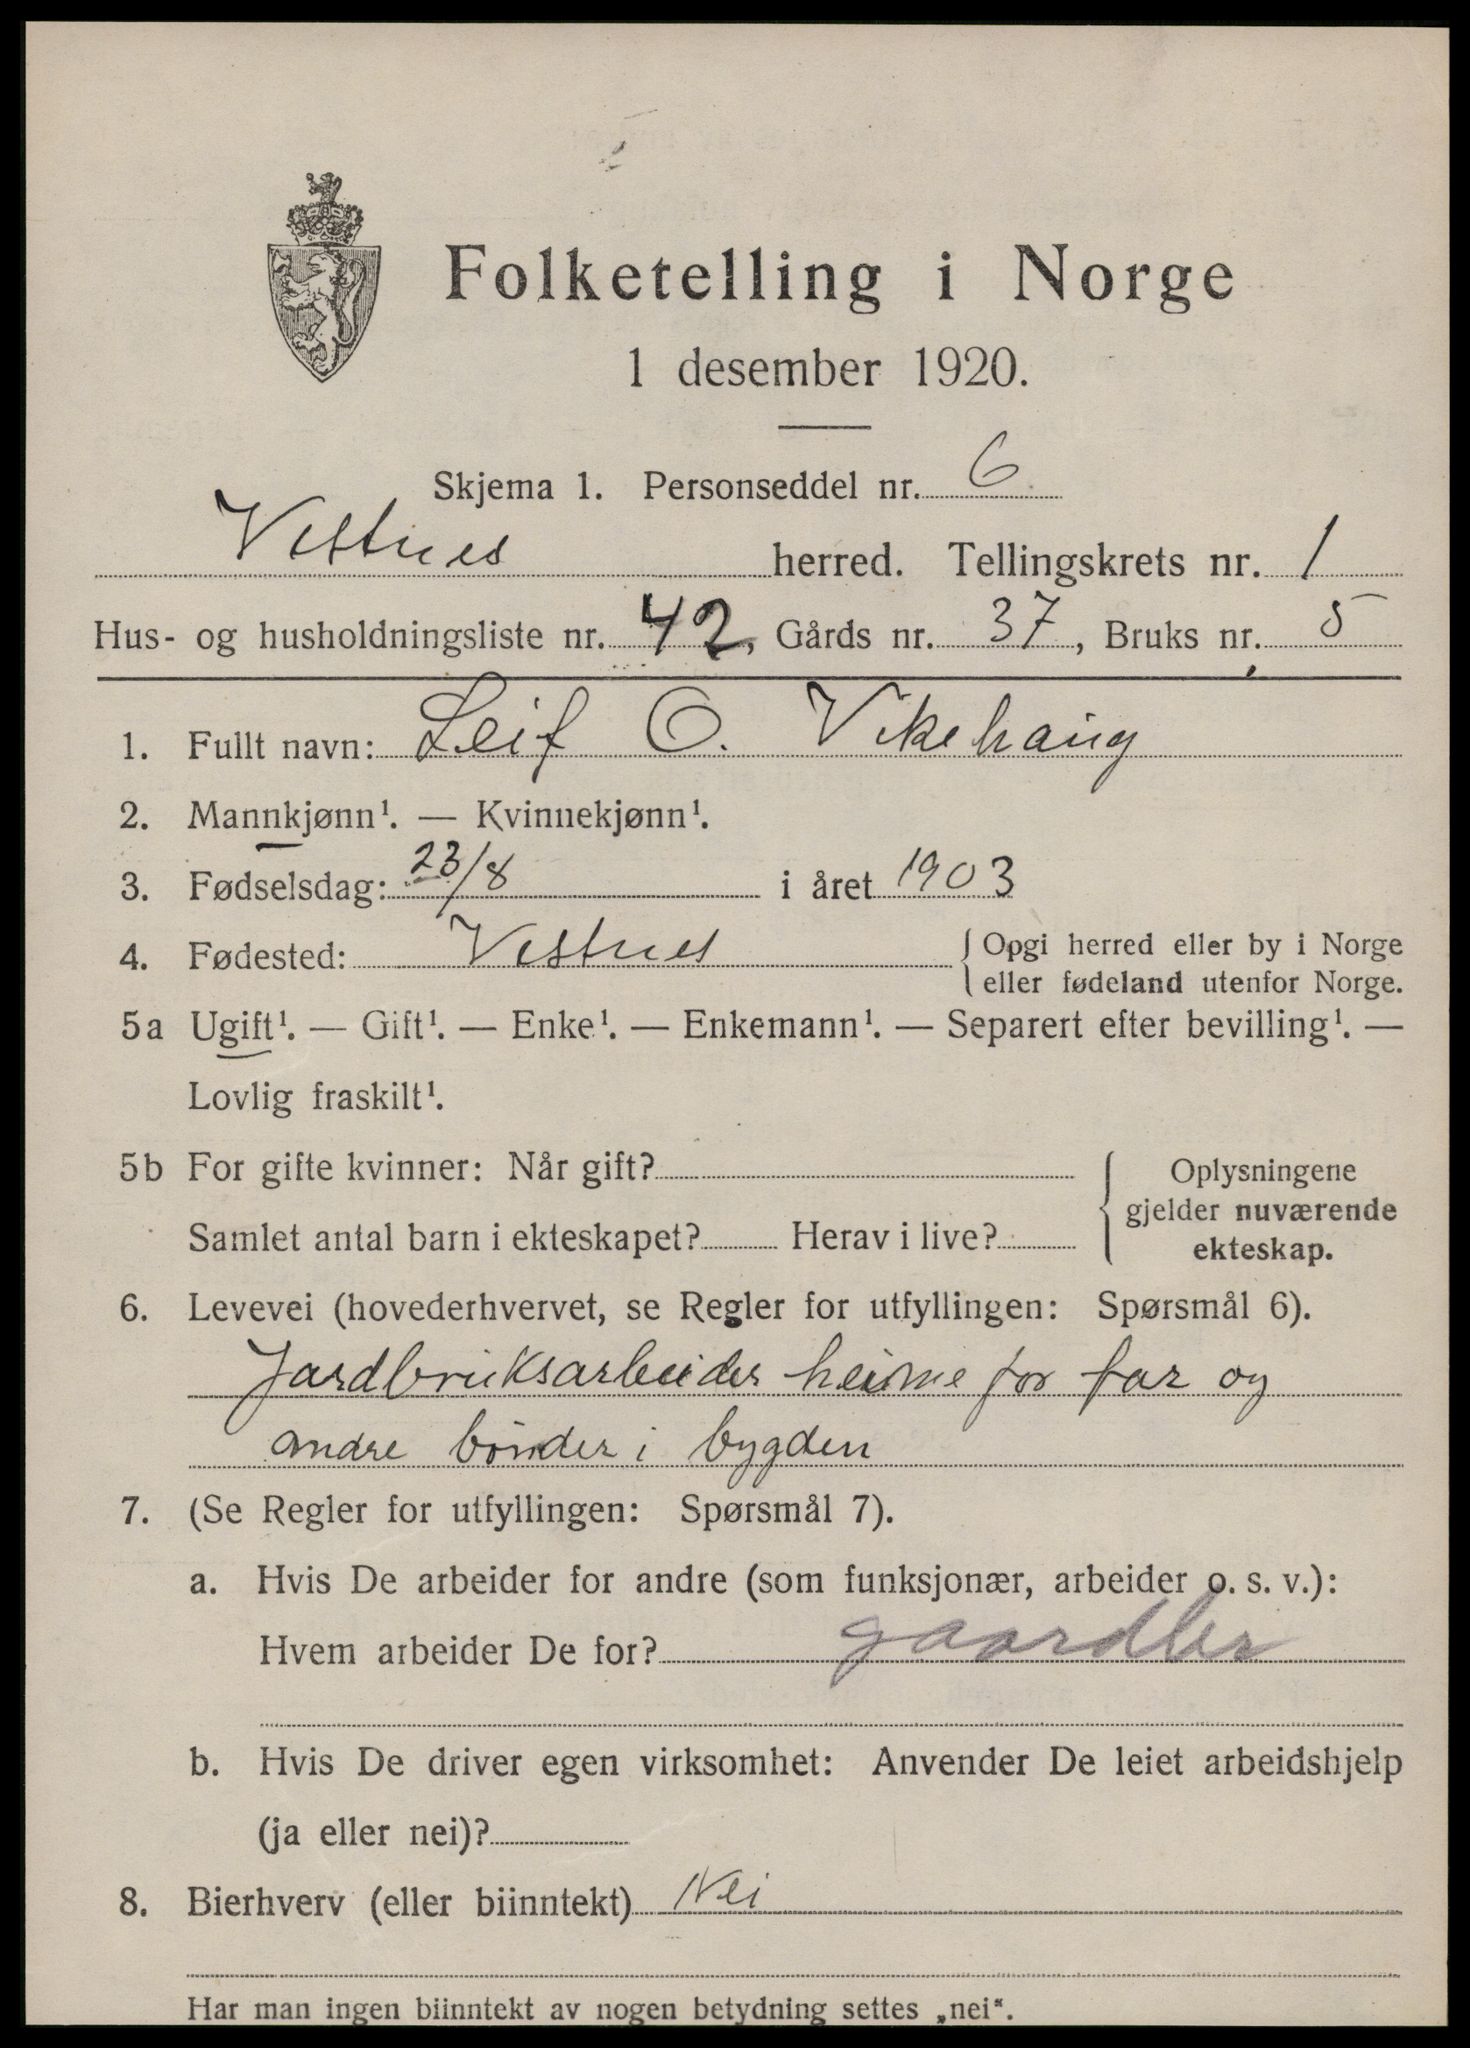 Folketelling i Norge
1 desember 1920.
Skjema 1. Personseddel nr. 6
Vestnes herred. Tellingskrets nr. 1
Hus- og husholdningsliste nr. 42, Gårds nr. 37, Bruks nr. 5
1. Fullt navn: Leif O. Vikehaug
2. Mannkjønn¹. — Kvinnekjønn¹.
3. Fødselsdag: 23/8 i året 1903
4. Fødested: Vestnes { Opgi herred eller by i Norge
eller fødeland utenfor Norge.
5a Ugift¹. — Gift¹. — Enke¹. — Enkemann¹. — Separert efter bevilling¹. —
Lovlig fraskilt¹.
5b For gifte kvinner: Når gift?
Samlet antal barn i ekteskapet? Herav i live?
Oplysningene
gjelder nuværende
ekteskap.
6. Levevei (hovederhvervet, se Regler for utfyllingen: Spørsmål 6).
Jordbruksarbeider heime for far og
andre bønder i bygden
7. (Se Regler for utfyllingen: Spørsmål 7).
a. Hvis De arbeider for andre (som funksjonær, arbeider o. s. v.):
Hvem arbeider De for? gaardbr
b. Hvis De driver egen virksomhet: Anvender De leiet arbeidshjelp
(ja eller nei)?
8. Bierhverv (eller biinntekt) Nei
Har man ingen biinntekt av nogen betydning settes „nei“.